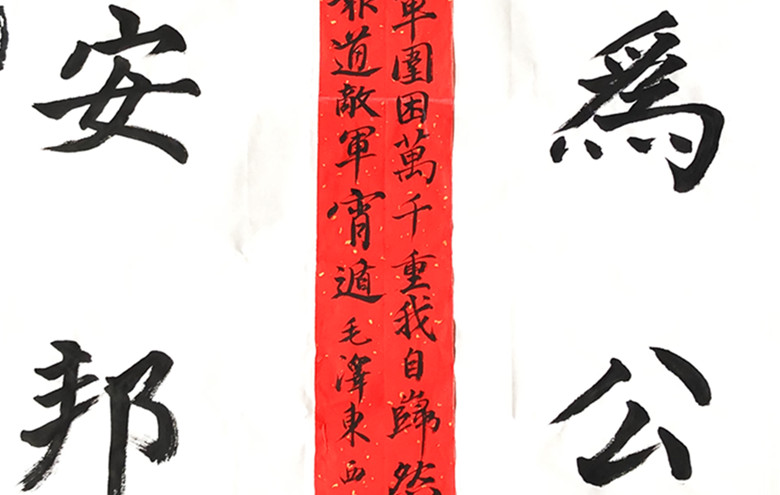 爲公
軍圍困萬千重我自巋然
報道敵軍宵遁毛澤東西
安邦